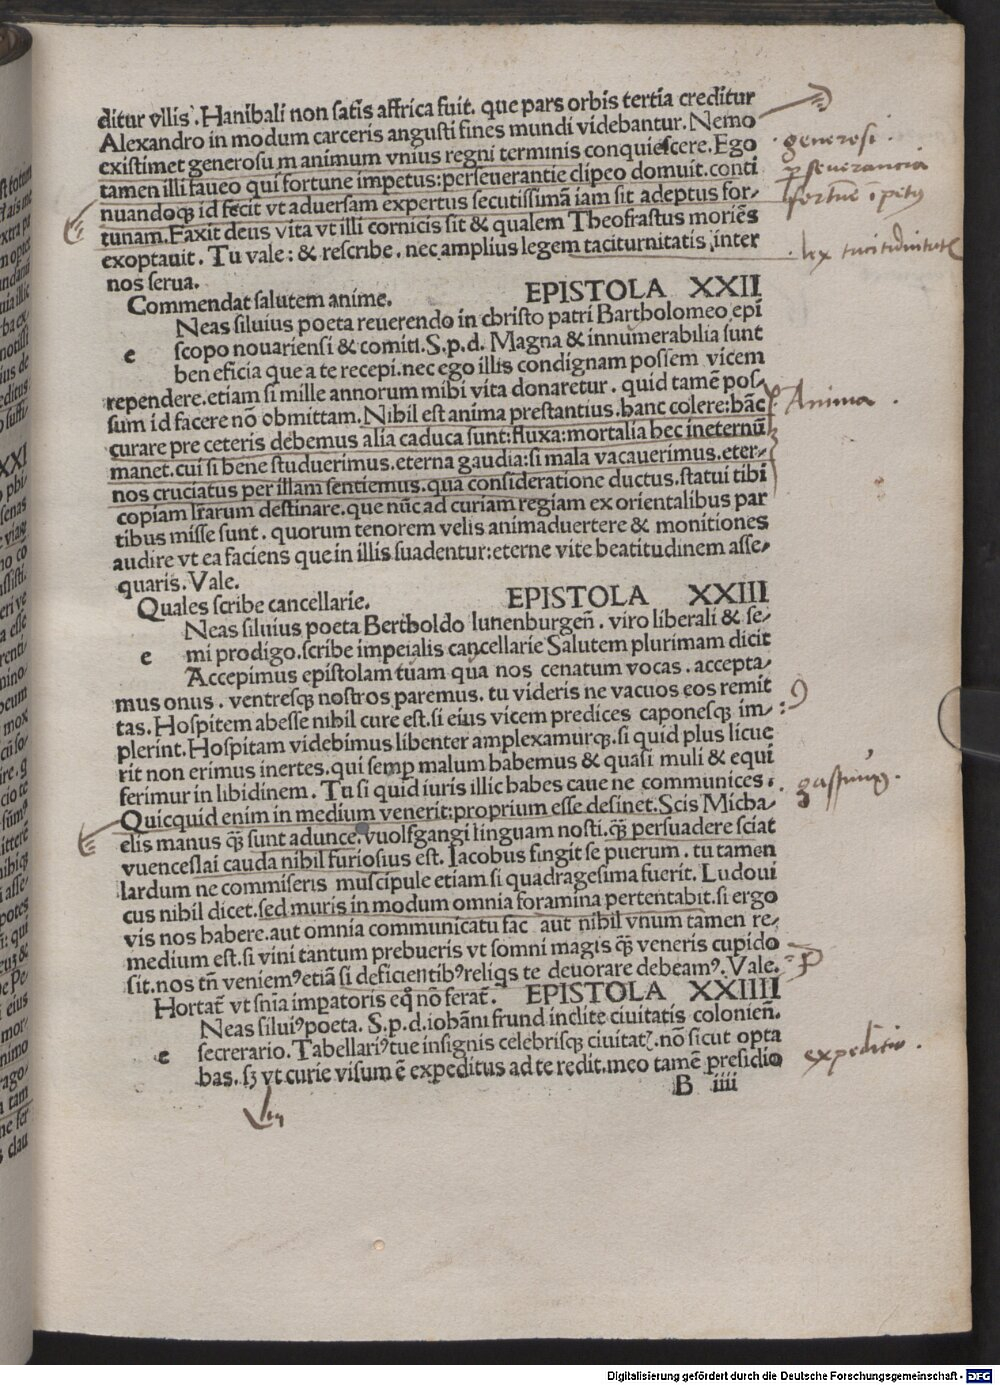 ditur vllis. Hanibali non satis affrica fuit. que pars orbis tertia creditur
Alexandro in modum carceris angusti fines mundi videbantur. Nemo
existimet generosu m animum vnius regni terminis conquiescere. Ego
tamen illi faueo qui fortune impetus: perseuerantie clipeo domuit. conti
nuandoqꝫ id fecit vt aduersam expertus secutissimā iam sit adeptus for-
tunam. Faxit deus vita vt illi cornicis sit & qualem Theofrastus moriēs
exoptauit. Tu vale: & rescribe. nec amplius legem taciturnitatis inter
nos serua.
generosi.
ꝑseuerancia
fortune ipitus
lex
Commendat salutem anime. EPISTOLA XXII
Neas siluius poeta reuerendo in christo patri Bartholomeo epi
e scopo nouariensi & comiti. S. p. d. Magna & innumerabilia sunt
ben eficia que a te recepi. nec ego illis condignam possem vicem
rependere. etiam si mille annorum mihi vita donaretur. quid tamē pos-
sum id facere nō obmittam. Nihil est anima prestantius. hanc colere: hāc
curare pre ceteris debemus alia caduca sunt: fluxa: mortalia hec ineternū
manet. cui si bene studuerimus. eterna gaudia: si mala vacauerimus. eter-
nos cruciatus per illam sentiemus. qua consideratione ductus. statui tibi
copiam lr̄arum destinare. que nūc ad curiam regiam ex orientalibus par
tibus misse sunt. quorum tenorem velis animaduertere & monitiones
audire vt ea faciens que in illis suadentur: eterne vite beatitudinem asse-
quaris. Vale.
Anima.
Quales scribe cancellarie. EPISTOLA XXIII
Neas siluius poeta Bertholdo lunenburgeñ. viro liberali & se-
e mi prodigo. scribe impeialis cancellarie Salutem plurimam dicit
Accepimus epistolam tuam qua nos cenatum vocas. accepta-
mus onus. ventresqꝫ nostros paremus. tu videris ne vacuos eos remit
tas. Hospitem abesse nihil cure est. si eius vicem predices caponesqꝫ im-
plerint. Hospitam videbimus libenter amplexamurqꝫ. si quid plus licue
rit non erimus inertes. qui semꝑ malum habemus & quasi muli & equi
ferimur in libidinem. Tu si quid iuris illic habes caue ne communices.
Quicquid enim in medium venerit: proprium esse desinet. Scis Micha-
elis manus qꝫ̄ sunt adunce. vuolfgangi linguam nosti. qꝫ̄ persuadere sciat
vuenceslai cauda nihil furiosius est. Iacobus fingit se puerum. tu tamen
lardum ne commiseris muscipule etiam si quadragesima fuerit. Ludoui
cus nihil dicet. sed muris in modum omnia foramina pertentabit. si ergo
vis nos habere. aut omnia communicatu fac aut nihil vnum tamen re-
medium est. si vini tantum prebueris vt somni magis qꝫ̄ veneris cupido
sit. nos tn̄ veniemꝰ etiā si deficientibꝰ reliqs te deuorare debeamꝰ. Vale.
Hortat̄ vt sn̄ia imꝑatoris eq̊ nō ferat̄. EPISTOLA XXIIII
Neas siluiꝰ poeta. S. p. d. iohāni frund inclite ciuitatis colonieñ.
e secrerario. Tabellariꝰ tue insignis celebrisqꝫ ciuitatꝭ. nō sicut opta
bas. sꝫ vt curie visum ē expeditus ad te redit. meo tamē presidio
B iiii
Digitalisierung gefördert durch die Deutsche Forschungsgemeinschaft - DFG